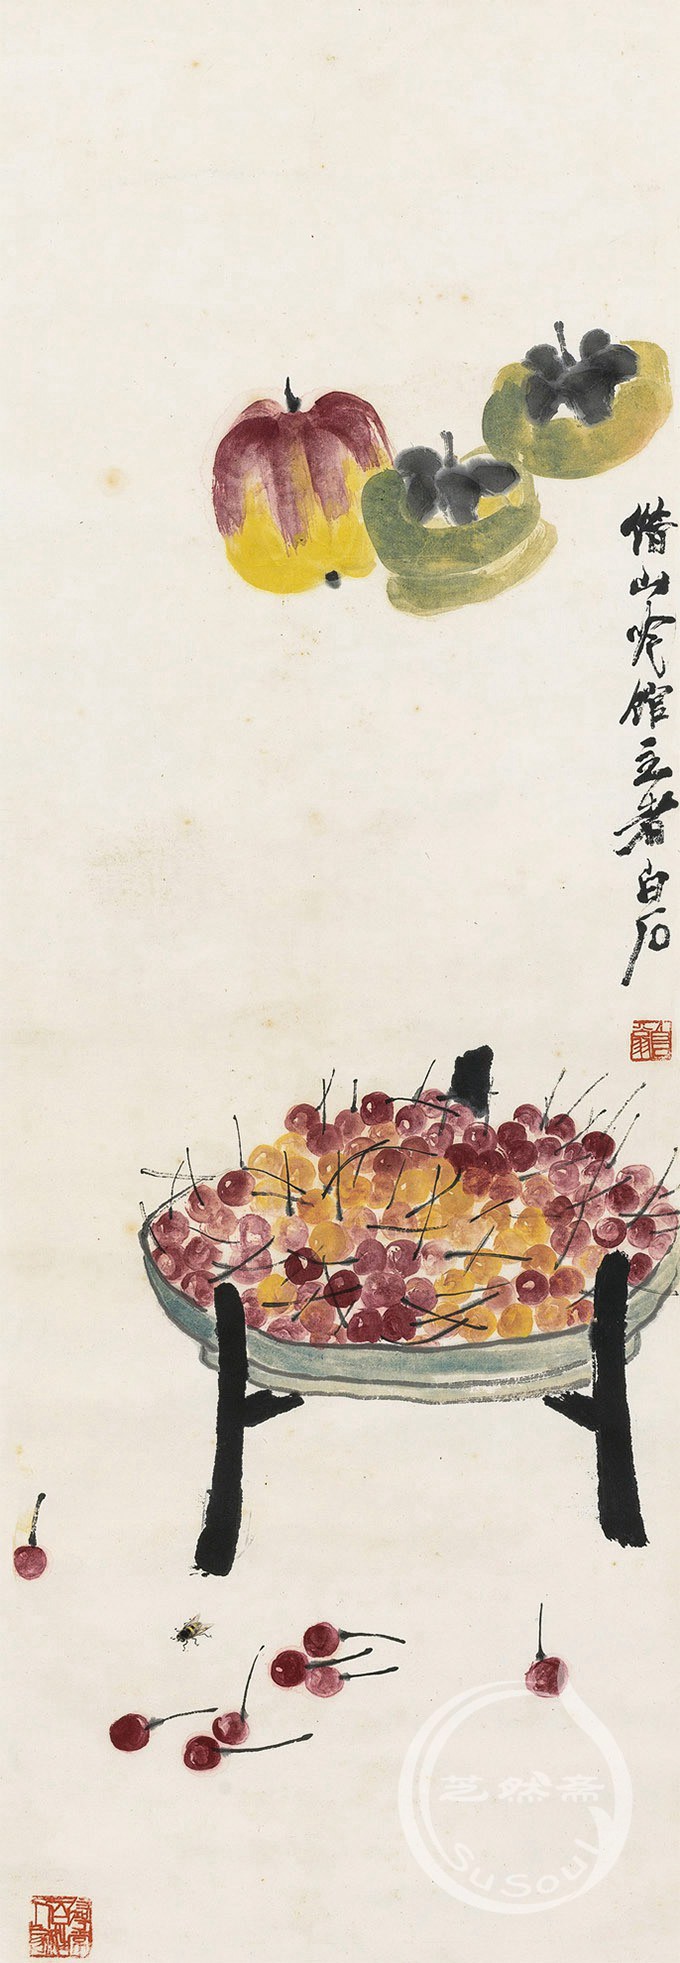 借山吟馆主者白石
芝然斋
SuSoul